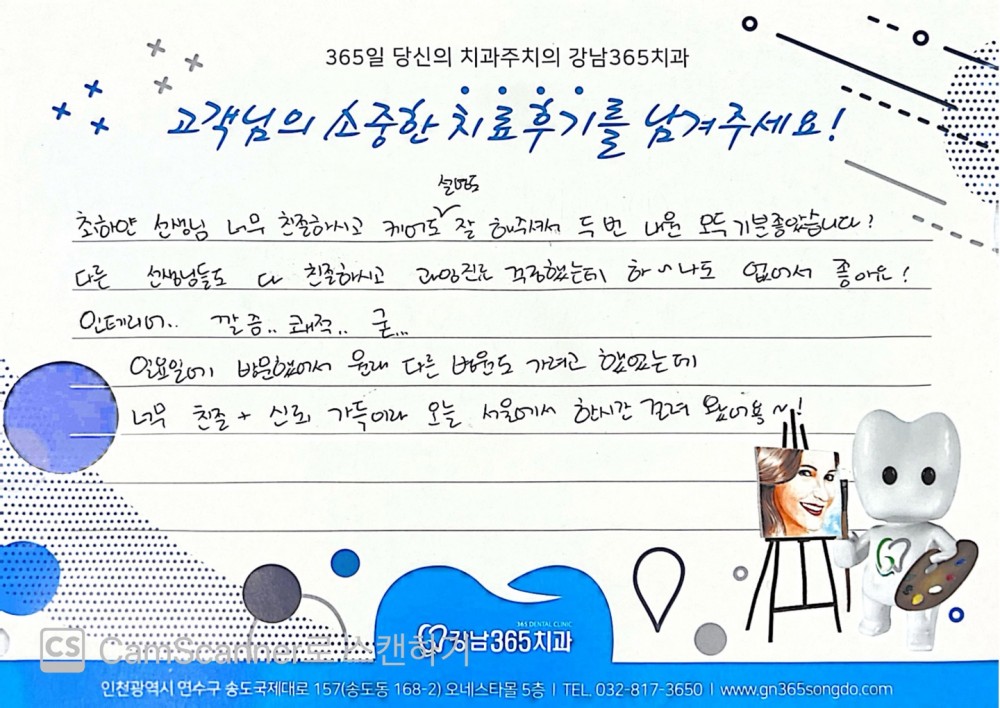 365일 당신의 치과주치의 강남365치과
고객님의 소중한 치료후기를 남겨주세요!
설명도
초하얀 선생님 너무 친절하시고 케어도 잘 해주셔서 두 번 내원 모두 기분좋았습니다!
다른 선생님들도 다 친절하시고 과잉진료 걱정했는데 하~나도 없어서 좋아요!
인테리어.. 깔끔.. 쾌적.. 굳...
일요일에 방문했어서 원래 다른 병원도 가려고 했었는데
너무 친절 + 신뢰 가득이라 오늘 서울에서 한시간 걸려 왔어용~!
365 DENTAL CLINIC
강남365치과
CS CamScanner로 스캔하기
인천광역시 연수구 송도국제대로 157(송도동 168-2) 오네스타몰 5층 | TEL. 032-817-3650 | www.gn365songdo.com